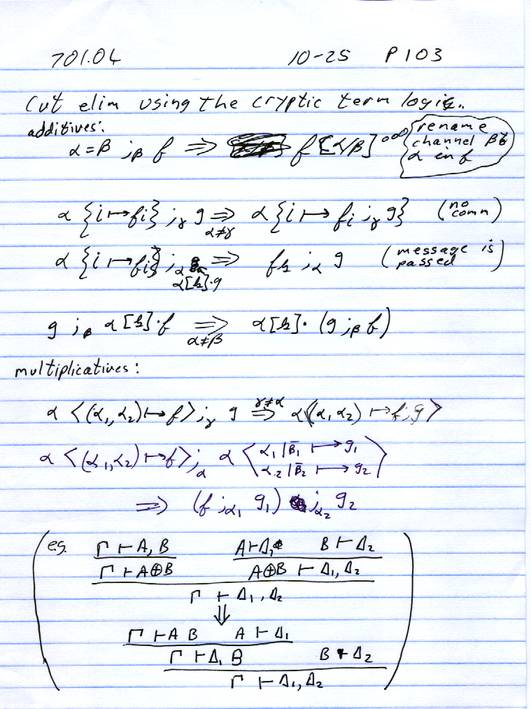 701.04 10-25 P103
Cut elim using the cryptic term logic..
additives:
α=β ;β f ⇒ f[α/β] rename channel β to α in f
α{i↦fi};γ g ⇒ α≠γ α{i↦fi ;γ g} (no comm)
α{i↦fi};α α[k]·g ⇒ fk ;α g (message is passed)
g ;β α[k]·f ⇒ α≠β α[k]·(g ;β f)
multiplicatives:
α<(α1,α2)↦f>;γ g ⇒ γ≠α α<(α1,α2)↦f;g>
α<(α1,α2)↦f>;α α<α1|β̄1 ↦ g1
α2|β̄2 ↦ g2>
⇒ (f ;α1 g1) ;α2 g2
(eg. Γ ⊢ A, B A ⊢ Δ1 B ⊢ Δ2
Γ ⊢ A⊕B A⊕B ⊢ Δ1, Δ2
Γ ⊢ Δ1, Δ2
⇓
Γ ⊢ A B A ⊢ Δ1
Γ ⊢ Δ1 B B ⊢ Δ2
Γ ⊢ Δ1, Δ2)